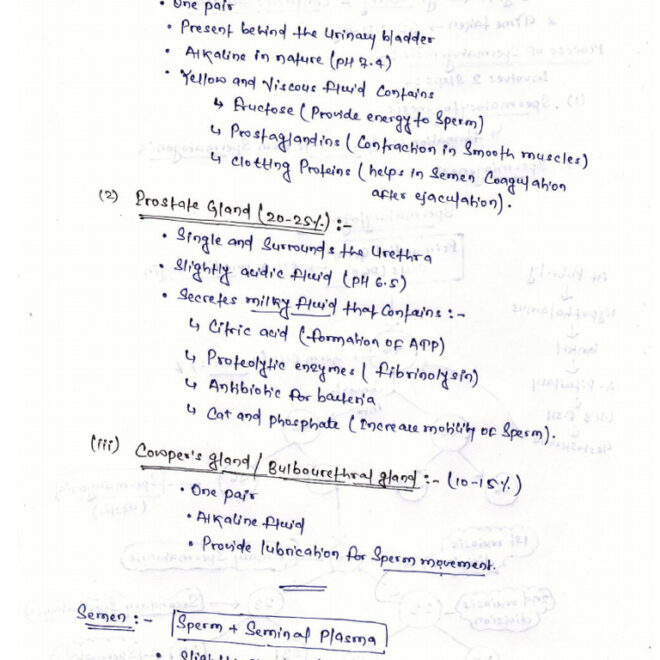 • One pair
• Present behind the Urinary bladder
• Alkaline in nature (pH 7.4)
• Yellow and Viscous fluid Contains
↳ fructose (Provide energy to Sperm)
↳ Prostaglandins (Contraction in Smooth muscles)
↳ Clotting Proteins (helps in Semen Coagulation
after ejaculation).
(2) Prostate Gland (20-25%) :-
• Single and Surrounds the Urethra
• Slightly acidic fluid (pH 6.5)
• Secretes milky fluid that Contains :-
↳ Citric acid (formation of ATP)
↳ Proteolytic enzymes (fibrinolysin)
↳ Antibiotic for bacteria
↳ Cat and phosphate (Increase mobility of Sperm).
(iii) Cowper's gland / Bulbourethral gland :- (10-15%)
• One pair
• Alkaline fluid
• Provide lubrication for Sperm movement.
Semen :- Sperm + Seminal Plasma